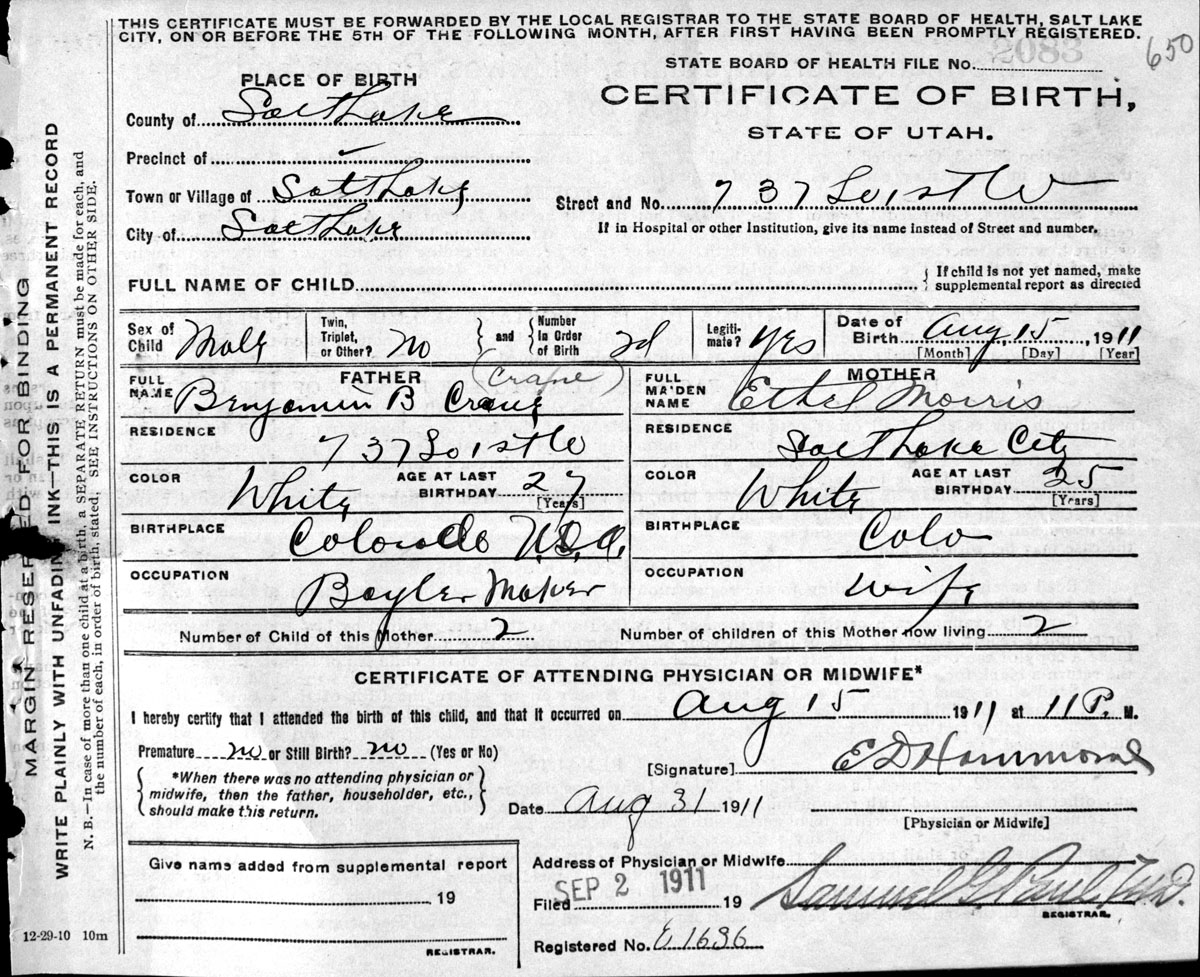 THIS CERTIFICATE MUST BE FORWARDED BY THE LOCAL REGISTRAR TO THE STATE BOARD OF HEALTH, SALT LAKE
CITY, ON OR BEFORE THE 5TH OF THE FOLLOWING MONTH, AFTER FIRST HAVING BEEN PROMPTLY REGISTERED.
650
2083
STATE BOARD OF HEALTH FILE No.
PLACE OF BIRTH
CERTIFICATE OF BIRTH,
STATE OF UTAH.
County of Salt Lake
Precinct of –
Town or Village of Salt Lake
Street and No. 737 So 1st W
City of Salt Lake
If in Hospital or other Institution, give its name instead of Street and number.
FULL NAME OF CHILD
{ If child is not yet named, make
supplemental report as directed
Sex of Child Male
Twin, Triplet, or Other? No
and
Number in Order of Birth 2d
Legitimate? Yes
Date of Birth Aug 15, 1911
[Month] [Day] [Year]
FATHER
(Crane)
FULL NAME Benjamin B Crane
RESIDENCE 737 So 1st W
COLOR White AGE AT LAST BIRTHDAY 27
[Years]
BIRTHPLACE Colorado U.S.A.
OCCUPATION Boyler Maker
MOTHER
FULL MAIDEN NAME Ethel Morris
RESIDENCE Salt Lake City
COLOR White AGE AT LAST BIRTHDAY 25
[Years]
BIRTHPLACE Colo
OCCUPATION Wife
Number of Child of this Mother 2 Number of children of this Mother now living 2
CERTIFICATE OF ATTENDING PHYSICIAN OR MIDWIFE*
I hereby certify that I attended the birth of this child, and that it occurred on Aug 15 1911 at 11 P. M.
Premature no or Still Birth? no (Yes or No)
{ *When there was no attending physician or
midwife, then the father, householder, etc.,
should make this return. }
[Signature] E D Hammond
Date Aug 31 1911
[Physician or Midwife]
Give name added from supplemental report
19
REGISTRAR.
Address of Physician or Midwife
SEP 2 1911
Filed 19
Samuel G. Paul M.D.
REGISTRAR.
Registered No. E 1636
12-29-10 10m
MARGIN RESERVED FOR BINDING
WRITE PLAINLY WITH UNFADING INK—THIS IS A PERMANENT RECORD
N. B.—In case of more than one child at a birth, a SEPARATE RETURN must be made for each, and
the number of each, in order of birth, stated. SEE INSTRUCTIONS ON OTHER SIDE.